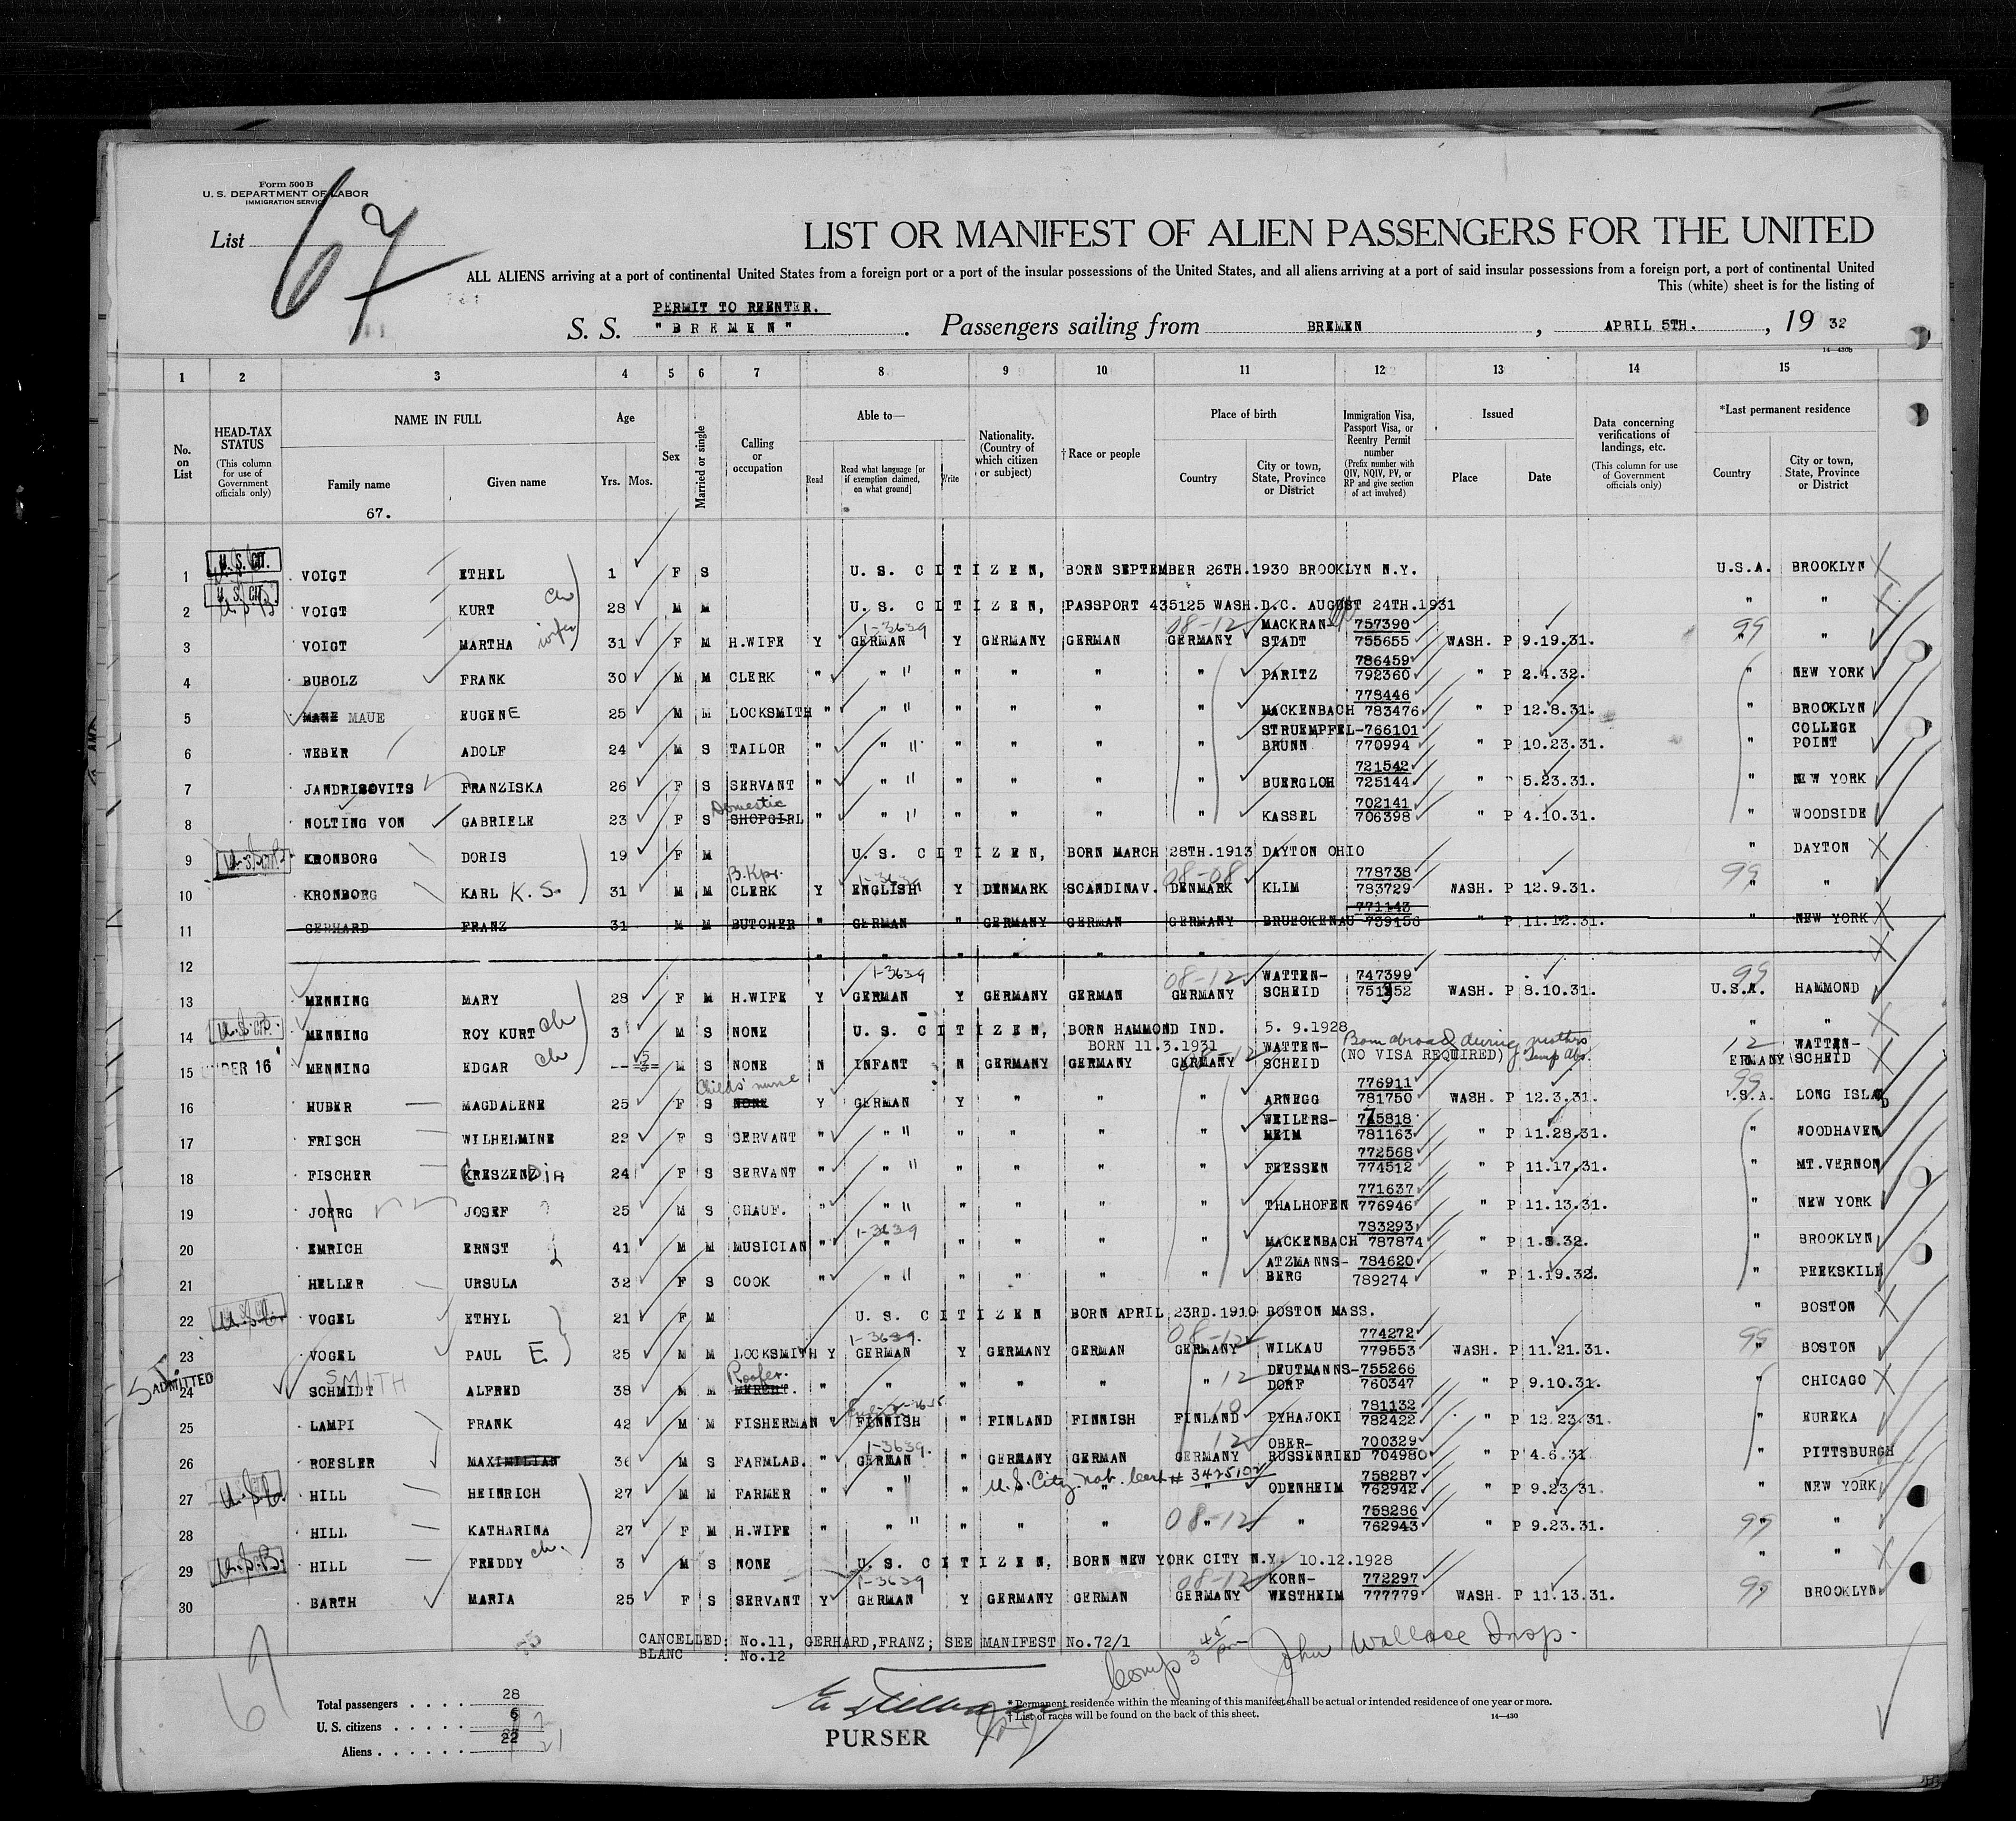 Form 500 B
U. S. DEPARTMENT OF LABOR
IMMIGRATION SERVICE
List 67
LIST OR MANIFEST OF ALIEN PASSENGERS FOR THE UNITED
ALL ALIENS arriving at a port of continental United States from a foreign port or a port of the insular possessions of the United States, and all aliens arriving at a port of said insular possessions from a foreign port, a port of continental United
This (white) sheet is for the listing of
PERMIT TO REENTER.
S. S. "BREMEN" . Passengers sailing from BREMEN , APRIL 5TH. , 19 32
14—430b
1 2 3 4 5 6 7 8 9 10 11 12 13 14 15
No. on List
HEAD-TAX STATUS (This column for use of Government officials only)
NAME IN FULL Family name Given name
67.
Age Yrs. Mos.
Sex
Married or single
Calling or occupation
Able to— Read Read what language [or if exemption claimed, on what ground] Write
Nationality. (Country of which citizen or subject)
†Race or people
Place of birth Country City or town, State, Province or District
Immigration Visa, Passport Visa, or Reentry Permit number (Prefix number with QIV, NQIV, PV, or RP and give section of act involved)
Issued Place Date
Data concerning verifications of landings, etc. (This column for use of Government officials only)
*Last permanent residence Country City or town, State, Province or District
1 U. S. CIT. VOIGT ETHEL 1 F S U. S. CITIZEN, BORN SEPTEMBER 26TH.1930 BROOKLYN N.Y. U.S.A. BROOKLYN
2 U. S. CIT. VOIGT KURT 28 M M U. S. CITIZEN, PASSPORT 435125 WASH.D.C. AUGUST 24TH.1931 " "
3 VOIGT MARTHA wife 31 F M H.WIFE Y 1-3639 GERMAN Y GERMANY GERMAN 08-12 GERMANY MACKRAN-STADT 757390 755655 WASH. P 9.19.31. 99 " "
4 BUBOLZ FRANK 30 M M CLERK " " " " " " " PARITZ 786459 792360 " P 2.4.32. " NEW YORK
5 MANE MAUE EUGENE 25 M M LOCKSMITH " " " " " " " MACKENBACH 778446 783476 " P 12.8.31. " BROOKLYN
6 WEBER ADOLF 24 M S TAILOR " " " " " " " STRUEMPFEL-BRUNN 766101 770994 " P 10.23.31. " COLLEGE POINT
7 JANDRISOVITS FRANZISKA 26 F S SERVANT " " " " " " " BUERGLOH 721542 725144 " P 5.23.31. " NEW YORK
8 NOLTING VON GABRIELE 23 F S Domestic SHOPGIRL " " " " " " " KASSEL 702141 706398 " P 4.10.31. " WOODSIDE
9 KRONBORG DORIS 19 F M U. S. CITIZEN, BORN MARCH 28TH.1913 DAYTON OHIO " DAYTON
10 KRONBORG KARL K. S. 31 M M B.Kpr. CLERK Y ENGLISH Y DENMARK SCANDINAV. 08-08 DENMARK KLIM 778738 783729 WASH. P 12.9.31. 99 " "
11 GERHARD FRANZ 31 M M BUTCHER " GERMAN " GERMANY GERMAN GERMANY BRUECKENAU 771143 739156 " P 11.12.31. " NEW YORK
12 " " " " "
13 MENNING MARY 28 F M H.WIFE Y 1-3639 GERMAN Y GERMANY GERMAN 08-12 GERMANY WATTEN-SCHEID 747399 751352 WASH. P 8.10.31. 99 U.S.A. HAMMOND
14 MENNING ROY KURT ch 3 M S NONE U. S. CITIZEN, BORN HAMMOND IND. 5. 9.1928 " "
15 UNDER 16 MENNING EDGAR ch -- 5 M S NONE N INFANT N GERMANY GERMANY BORN 11.3.1931 08-12 GERMANY WATTEN-SCHEID Born abroad during mothers temp abs. (NO VISA REQUIRED) 12 ERMANY WATTEN-SCHEID
16 HUBER MAGDALENE 25 F S Childs' nurse NONE Y GERMAN Y " " " ARNEGG 776911 781750 WASH. P 12.3.31. 99 U.S.A. LONG ISLAD
17 FRISCH WILHELMINE 22 F S SERVANT " " " " " " " WEILERS-HEIM 775818 781163 " P 11.28.31. " WOODHAVEN
18 FISCHER KRESZENDIA 24 F S SERVANT " " " " " " " FEESSEN 772568 774512 " P 11.17.31. " MT.VERNON
19 JOERG JOSEF 25 M S CHAUF. " " " " " " " THALHOFEN 771637 776946 " P 11.13.31. " NEW YORK
20 EMRICH ERNST 41 M M MUSICIAN " 1-3639 " " " " " MACKENBACH 783293 787874 " P 1.8.32. " BROOKLYN
21 HELLER URSULA 32 F S COOK " " " " " " " ATZMANNS-BERG 784620 789274 " P 1.19.32. " PEEKSKILL
22 VOGEL ETHYL 21 F M U. S. CITIZEN BORN APRIL 23RD.1910 BOSTON MASS. " BOSTON
23 VOGEL PAUL E 25 M M LOCKSMITH Y 1-3639. GERMAN Y GERMANY GERMAN 08-12 GERMANY WILKAU 774272 779553 WASH. P 11.21.31. 99 " BOSTON
24 ADMITTED SCHMIDT SMITH ALFRED 38 M M Roofer. MERCHT. " " " " " " 12 DEUTMANNS-DORF 755266 760347 " P 9.10.31. " CHICAGO
25 LAMPI FRANK 42 M M FISHERMAN FINNISH " FINLAND FINNISH FINLAND PYHAJOKI 781132 782422 " P 12.23.31. " EUREKA
26 ROESLER MAXIMILIAN 36 M S FARMLAB. " 1-3639. GERMAN " GERMANY GERMAN 12 GERMANY OBER-RUSSENRIED 700329 704980 " P 4.6.31 " PITTSBURGH
27 HILL HEINRICH 27 M M FARMER " " " U.S.City. nat. cert # 3425102 ODENHEIM 758287 762942 " P 9.23.31. " NEW YORK
28 HILL KATHARINA 27 F M H.WIFE " " " " " 08-12 " " 758286 762943 " P 9.23.31. 99 " "
29 HILL FREDDY ch. 3 M S NONE U. S. CITIZEN, BORN NEW YORK CITY N.Y. 10.12.1928 " "
30 BARTH MARIA 25 F S SERVANT Y 1-3639 GERMAN Y GERMANY GERMAN 08-12 GERMANY KORN-WESTHEIM 772297 777779 WASH. P 11.13.31. 99 " BROOKLYN
CANCELLED: No.11, GERHARD,FRANZ; SEE MANIFEST No.72/1
BLANC : No.12
Comp 3 45 pm John Wallace Insp.
67
Total passengers . . . . 28
U. S. citizens . . . . . 6
Aliens . . . . . . 22 21
PURSER
* Permanent residence within the meaning of this manifest shall be actual or intended residence of one year or more.
† List of races will be found on the back of this sheet.
14—430